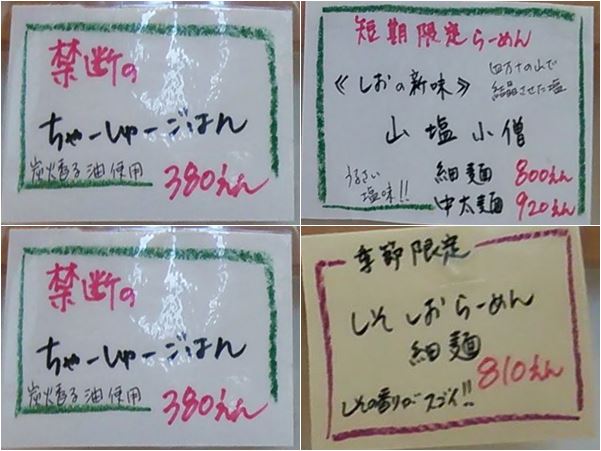 禁断の
ちゃーしゅーごはん
炭火香る油使用 380えん
短期限定らーめん
《しおの新味》
四万十の山で
結晶させた塩
山塩小僧
うるさい
塩味!!
細麺 800えん
中太麺 920えん
禁断の
ちゃーしゅーごはん
炭火香る油使用 380えん
季節限定
しそしおらーめん
細麺
810えん
しその香りがスゴイ!!